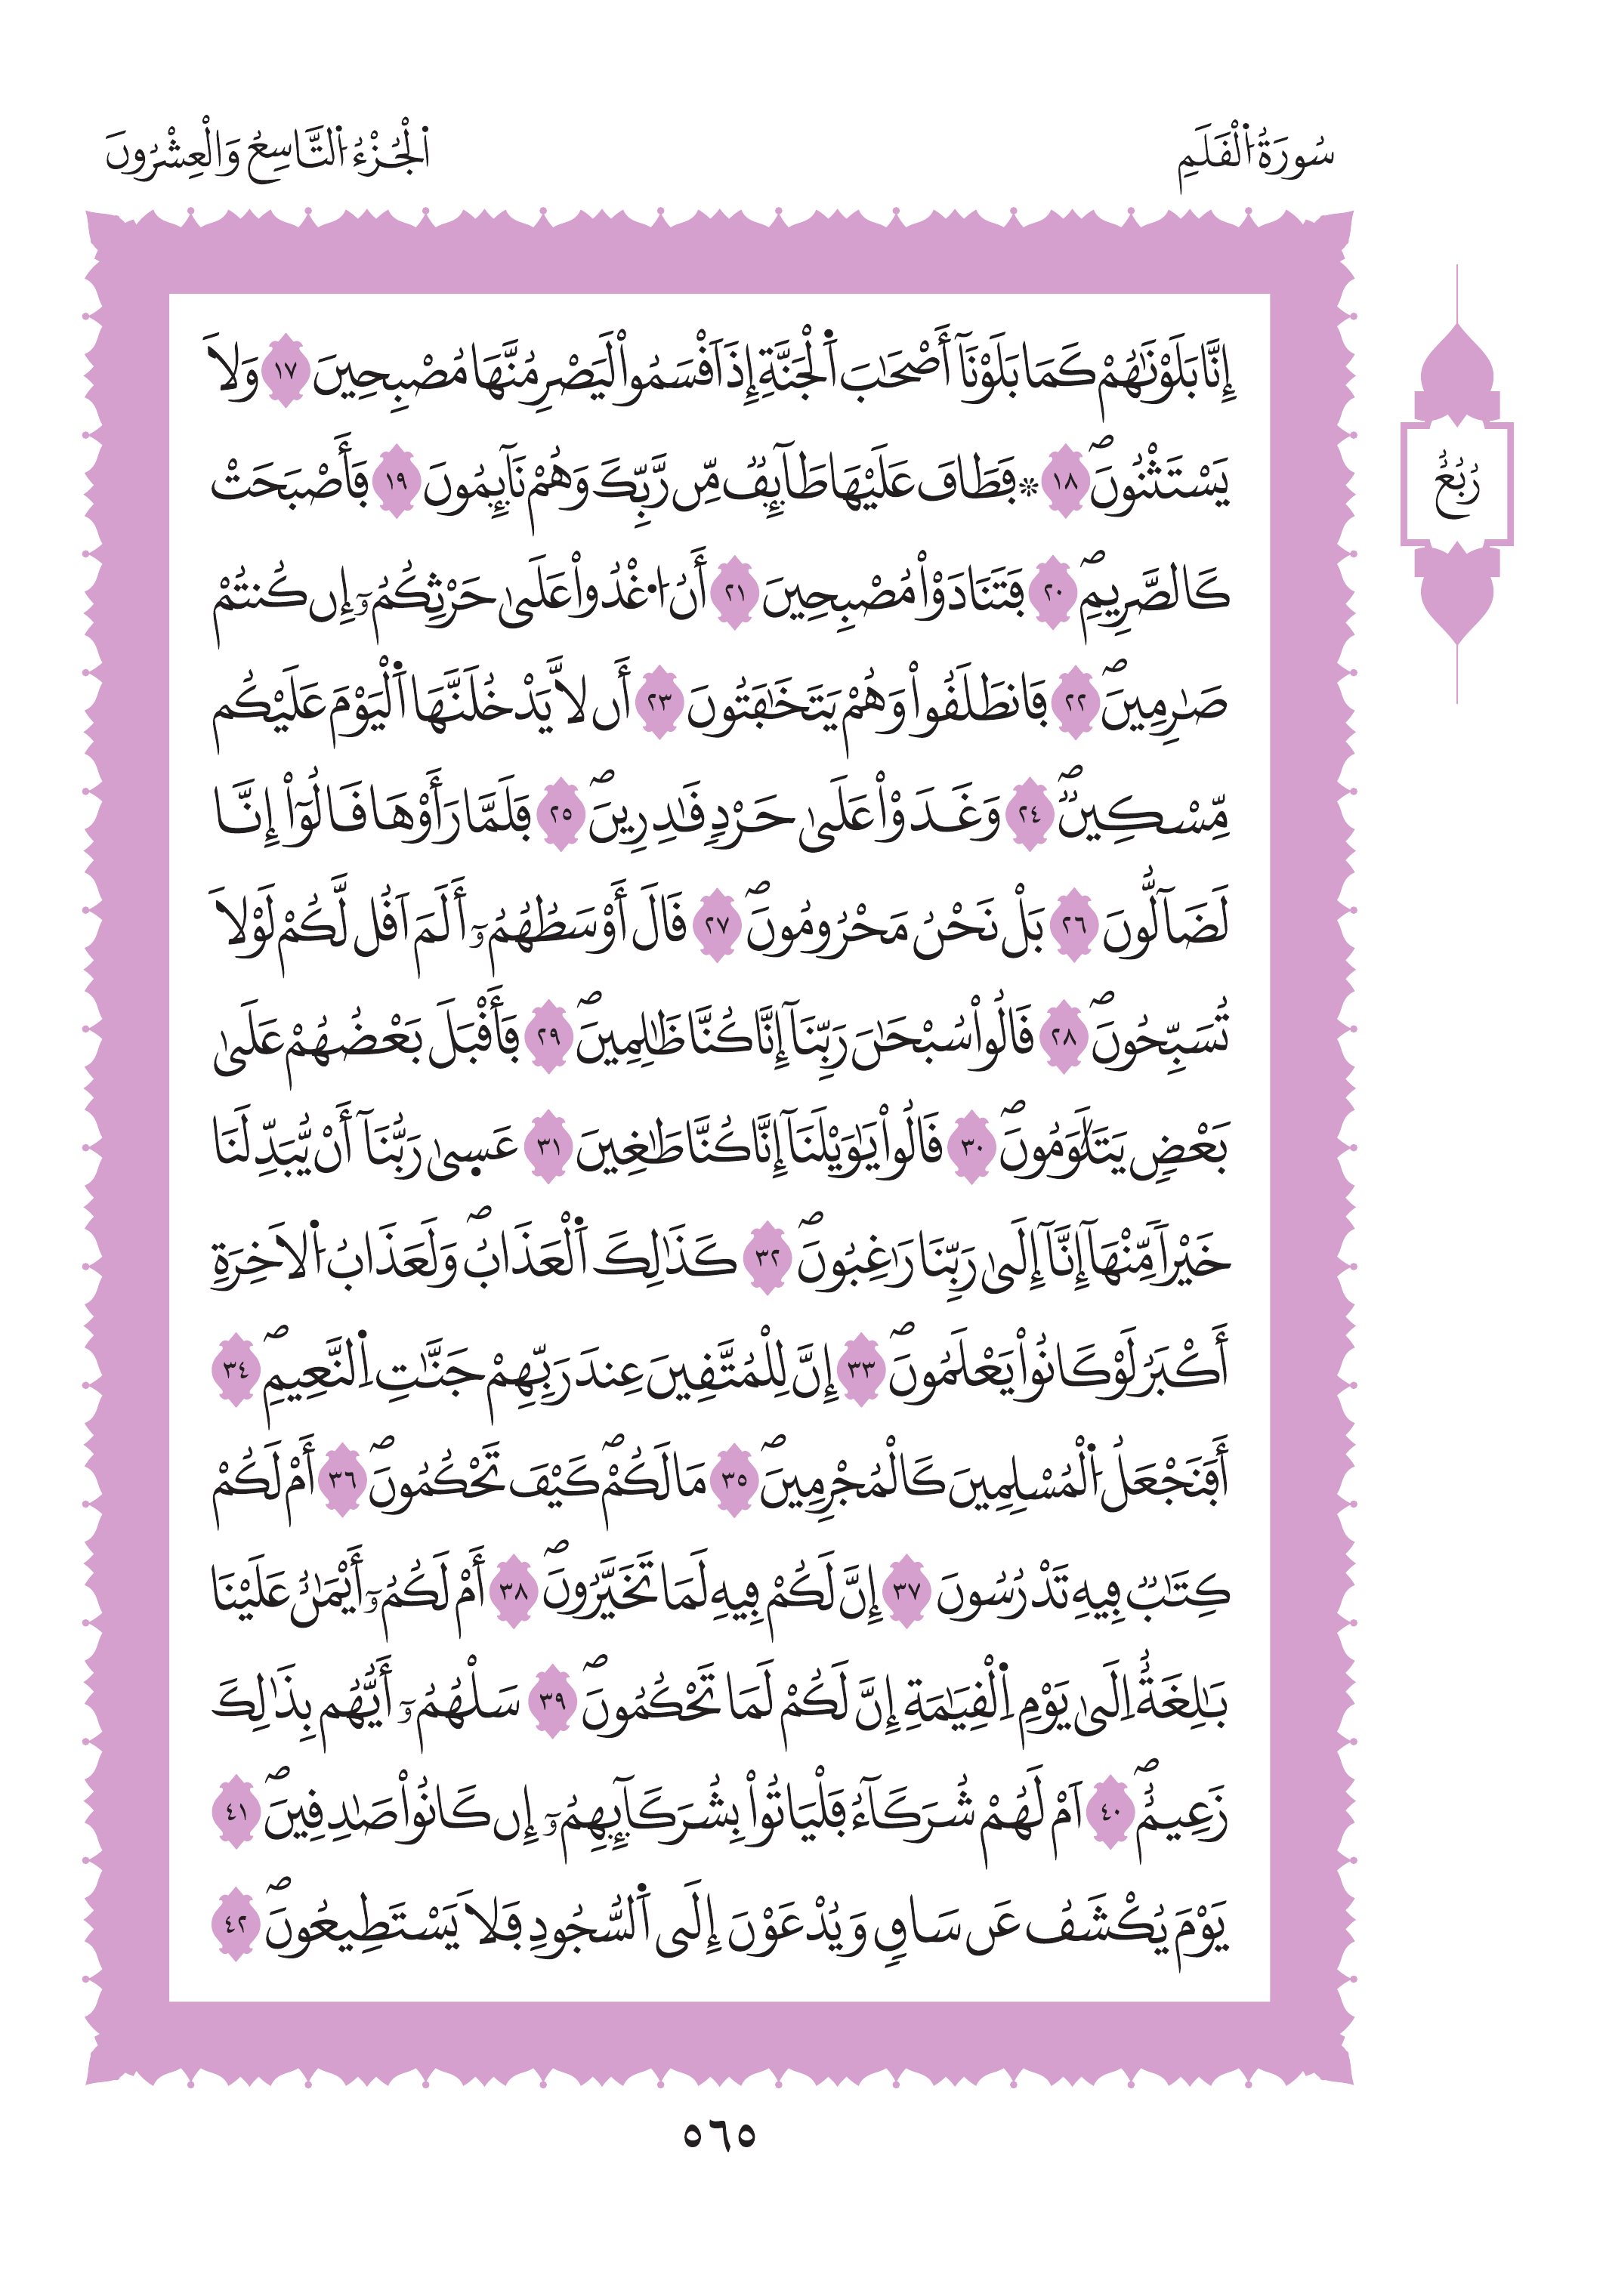 سُورَةُ اُ۬لْقَلَمِ
اُ۬لْجُزْءُ اُ۬لتَّاسِعُ وَالْعِشْرُونَ
إِنَّا بَلَوْنَٰهُمْ كَمَا بَلَوْنَآ أَصْحَٰبَ اَ۬لْجَنَّةِ إِذَ اَقْسَمُواْ لَيَصْرِمُنَّهَا مُصْبِحِينَ ١٧ وَلَا
يَسْتَثْنُونَۖ ١٨ ۞ فَطَافَ عَلَيْهَا طَآئِفٞ مِّن رَّبِّكَ وَهُمْ نَآئِمُونَ ١٩ فَأَصْبَحَتْ
كَالصَّرِيمِۖ ٢٠ فَتَنَادَوْاْ مُصْبِحِينَ ٢١ أَنُ اُ۟غْدُواْ عَلَىٰ حَرْثِكُمُۥٓ إِن كُنتُمْ
صَٰرِمِينَۖ ٢٢ فَانطَلَقُواْ وَهُمْ يَتَخَٰفَتُونَ ٢٣ أَن لَّا يَدْخُلَنَّهَا اَ۬لْيَوْمَ عَلَيْكُم
مِّسْكِينٞۖ ٢٤ وَغَدَوْاْ عَلَىٰ حَرْدٖ قَٰدِرِينَۖ ٢٥ فَلَمَّا رَأَوْهَا قَالُوٓاْ إِنَّا
لَضَآلُّونَ ٢٦ بَلْ نَحْنُ مَحْرُومُونَۖ ٢٧ قَالَ أَوْسَطُهُمُۥٓ أَلَمَ اَقُل لَّكُمْ لَوْلَا
تُسَبِّحُونَۖ ٢٨ قَالُواْ سُبْحَٰنَ رَبِّنَآ إِنَّا كُنَّا ظَٰلِمِينَۖ ٢٩ فَأَقْبَلَ بَعْضُهُمْ عَلَىٰ
بَعْضٖ يَتَلَٰوَمُونَۖ ٣٠ قَالُواْ يَٰوَيْلَنَآ إِنَّا كُنَّا طَٰغِينَ ٣١ عَس۪ىٰ رَبُّنَآ أَنْ يُّبَدِّلَنَا
خَيْراٗ مِّنْهَآ إِنَّآ إِلَىٰ رَبِّنَا رَٰغِبُونَۖ ٣٢ كَذَٰلِكَ اَ۬لْعَذَابُۖ وَلَعَذَابُ اُ۬لَاخِرَةِ
أَكْبَرُ لَوْ كَانُواْ يَعْلَمُونَۖ ٣٣ إِنَّ لِلْمُتَّقِينَ عِندَ رَبِّهِمْ جَنَّٰتِ اِ۬لنَّعِيمِۖ ٣٤
أَفَنَجْعَلُ اُ۬لْمُسْلِمِينَ كَالْمُجْرِمِينَۖ ٣٥ مَا لَكُمْۖ كَيْفَ تَحْكُمُونَۖ ٣٦ أَمْ لَكُمْ
كِتَٰبٞ فِيهِ تَدْرُسُونَ ٣٧ إِنَّ لَكُمْ فِيهِ لَمَا تَخَيَّرُونَۖ ٣٨ أَمْ لَكُمُۥٓ أَيْمَٰنٌ عَلَيْنَا
بَٰلِغَةٌ اِلَىٰ يَوْمِ اِ۬لْقِيَٰمَةِ إِنَّ لَكُمْ لَمَا تَحْكُمُونَۖ ٣٩ سَلْهُمُۥٓ أَيُّهُم بِذَٰلِكَ
زَعِيمٌۖ ٤٠ اَمْ لَهُمْ شُرَكَآءُ فَلْيَاتُواْ بِشُرَكَآئِهِمُۥٓ إِن كَانُواْ صَٰدِقِينَۖ ٤١
يَوْمَ يُكْشَفُ عَن سَاقٖ وَيُدْعَوْنَ إِلَى اَ۬لسُّجُودِ فَلَا يَسْتَطِيعُونَۖ ٤٢
رُبُعُ
٥٦٥